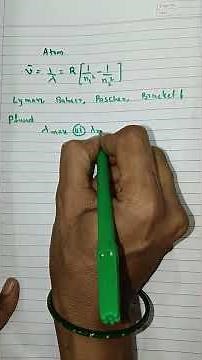 Atom
ν̄ = 1/λ = R [1/n₁² - 1/n₂²]
Lyman Balmer, Paschen, Bracket &
Pfund
λ max (or) λ